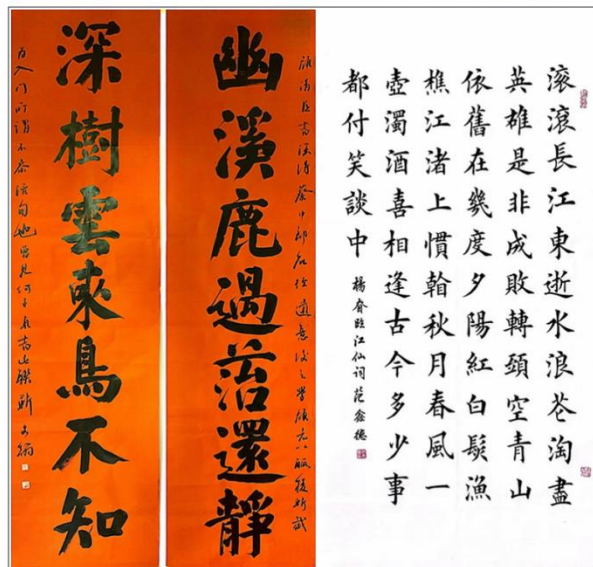 滚滚長江東逝水浪花淘盡
英雄是非成敗轉頭空青山
依舊在幾度夕陽紅白髮漁
樵江渚上慣看秋月春風一
壺濁酒喜相逢古今多少事
都付笑談中
楊昚臨江仙詞范鑫德
幽溪鹿過苔還靜
深樹雲來鳥不知